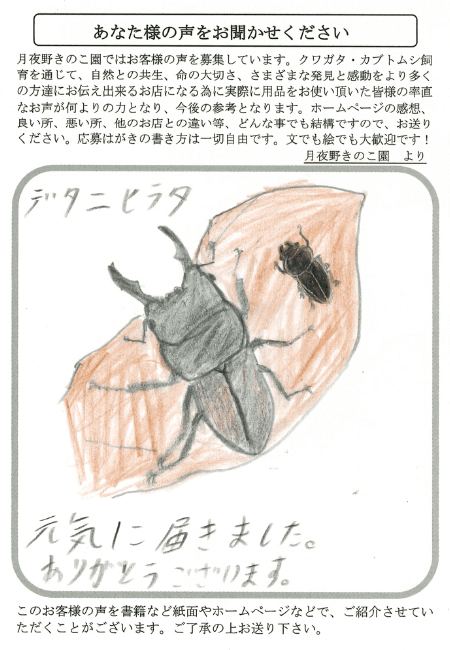 あなた様の声をお聞かせください
月夜野きのこ園ではお客様の声を募集しています。クワガタ・カブトムシ飼
育を通じて、自然との共生、命の大切さ、さまざまな発見と感動をより多く
の方達にお伝え出来るお店になる為に実際に用品をお使い頂いた皆様の率直
なお声が何よりの力となり、今後の参考となります。ホームページの感想、
良い所、悪い所、他のお店との違い等、どんな事でも結構ですので、お送り
ください。応募はがきの書き方は一切自由です。文でも絵でも大歓迎です！
月夜野きのこ園　より
デタニヒラタ
元気に届きました。
ありがとうございます。
このお客様の声を書籍など紙面やホームページなどで、ご紹介させてい
ただくことがございます。ご了承の上お送り下さい。